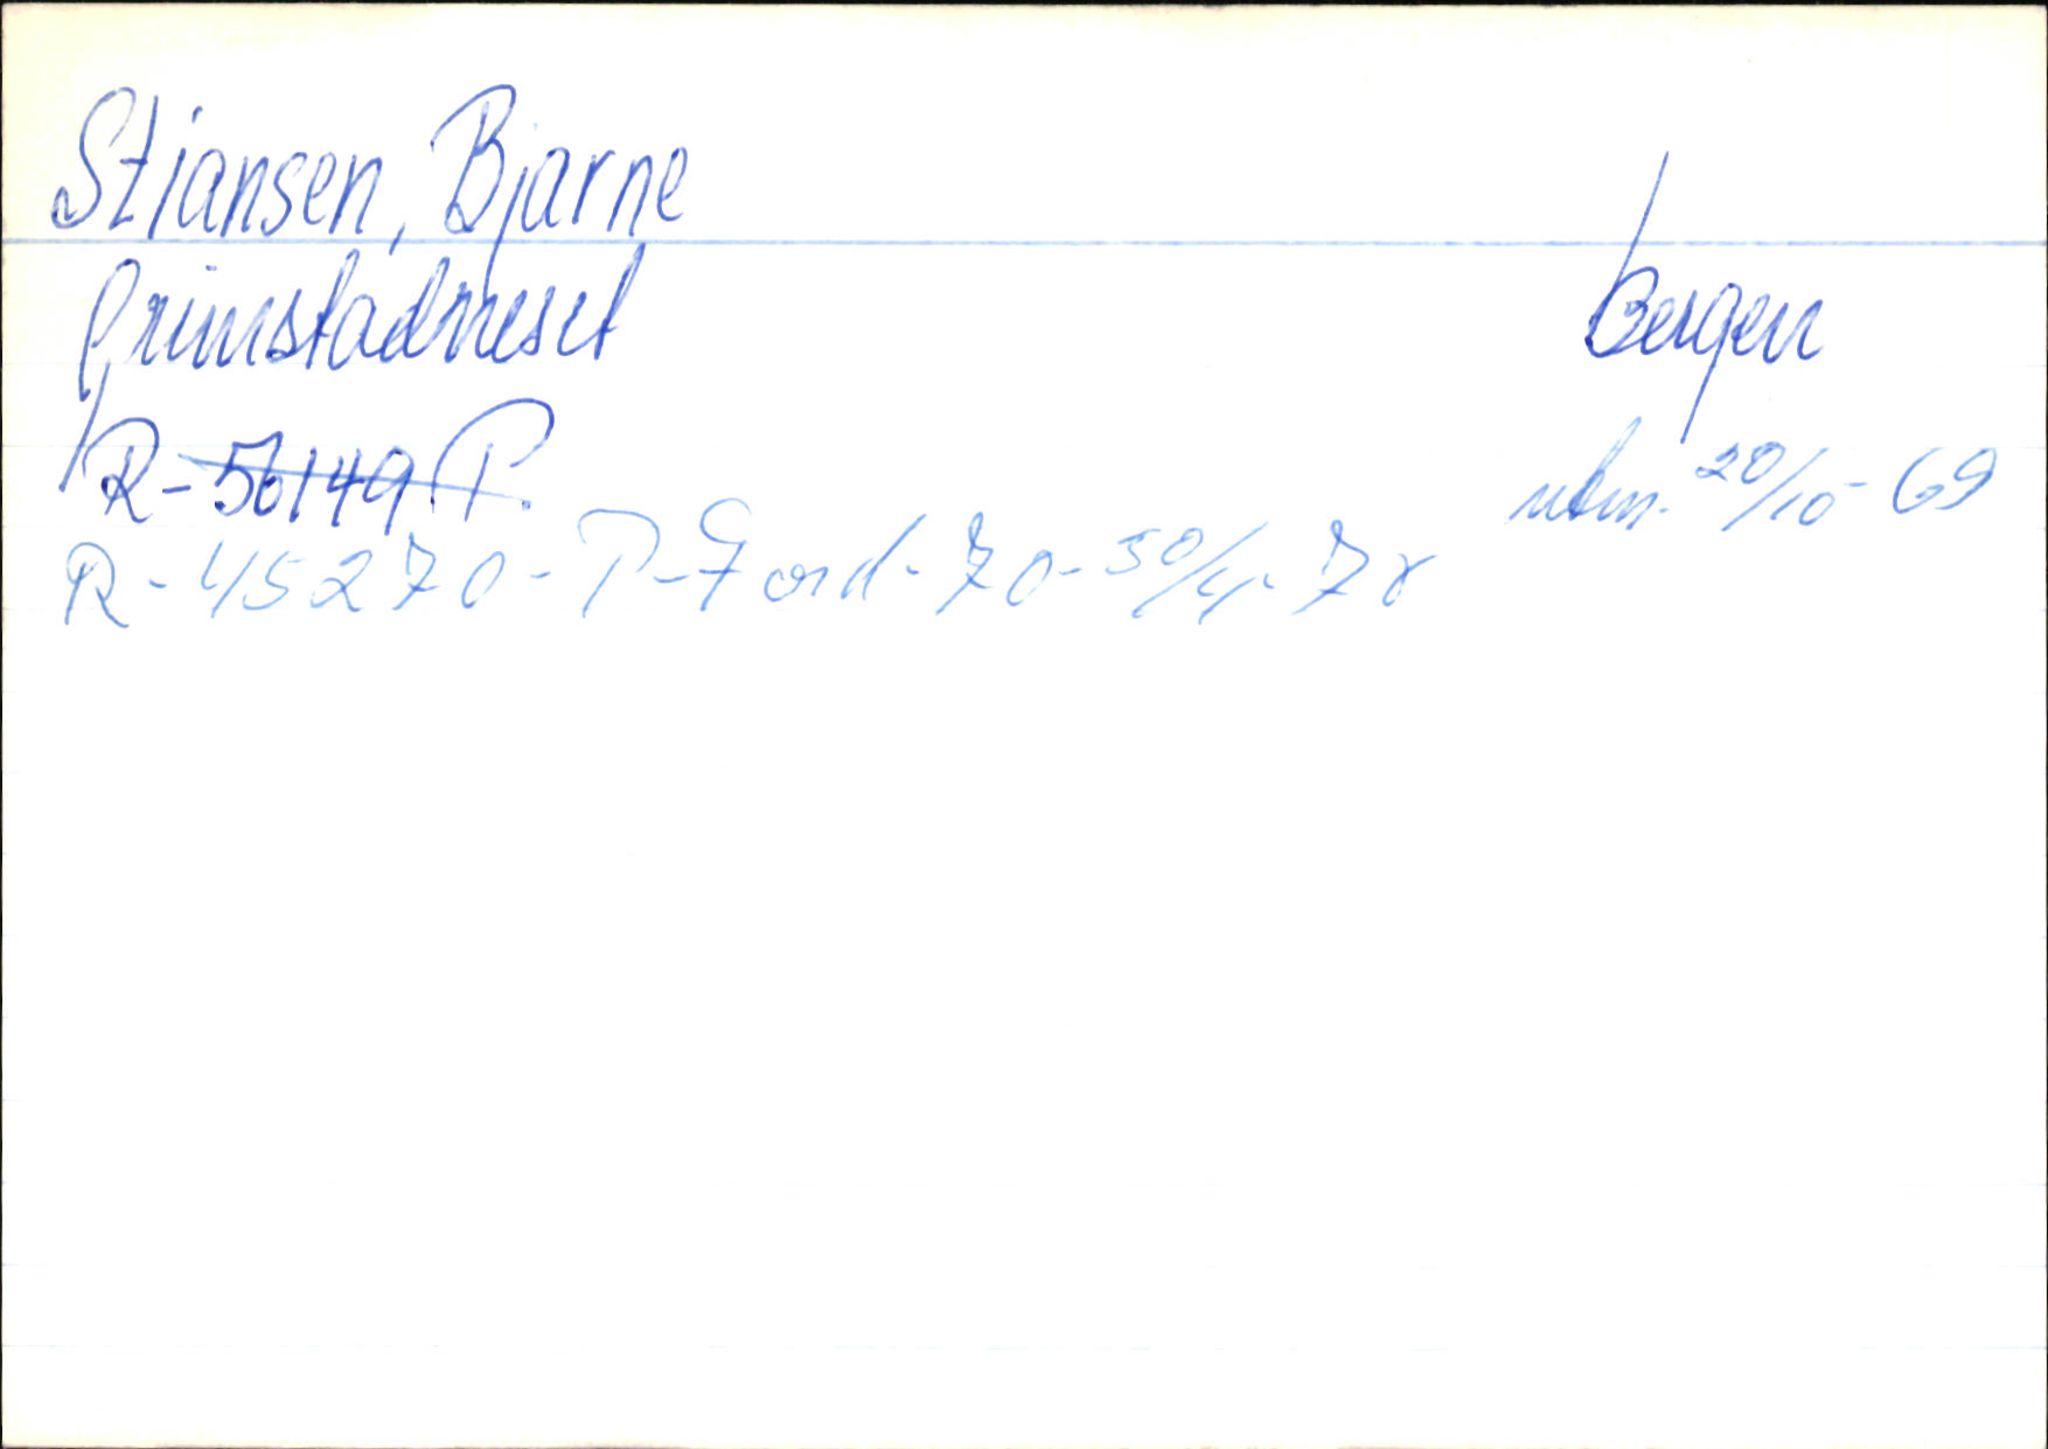 Stiansen, Bjarne
Grimstadneset Bergen
R-56149 P. utm. 20/10-69
R-45270-P-Ford-70-30/4-78